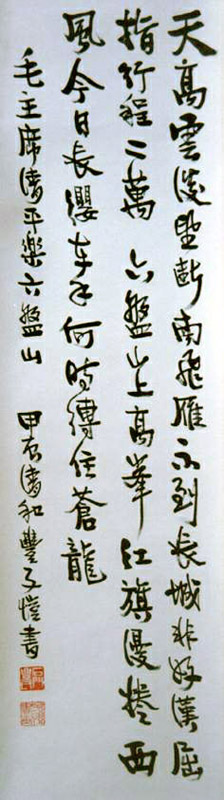 天高雲淡望斷南飛雁不到長城非好漢屈
指行程二萬 六盤山上高峯紅旗漫捲西
風今日長纓在手何時縛住蒼龍
毛主席清平樂六盤山 甲辰清和豐子愷書